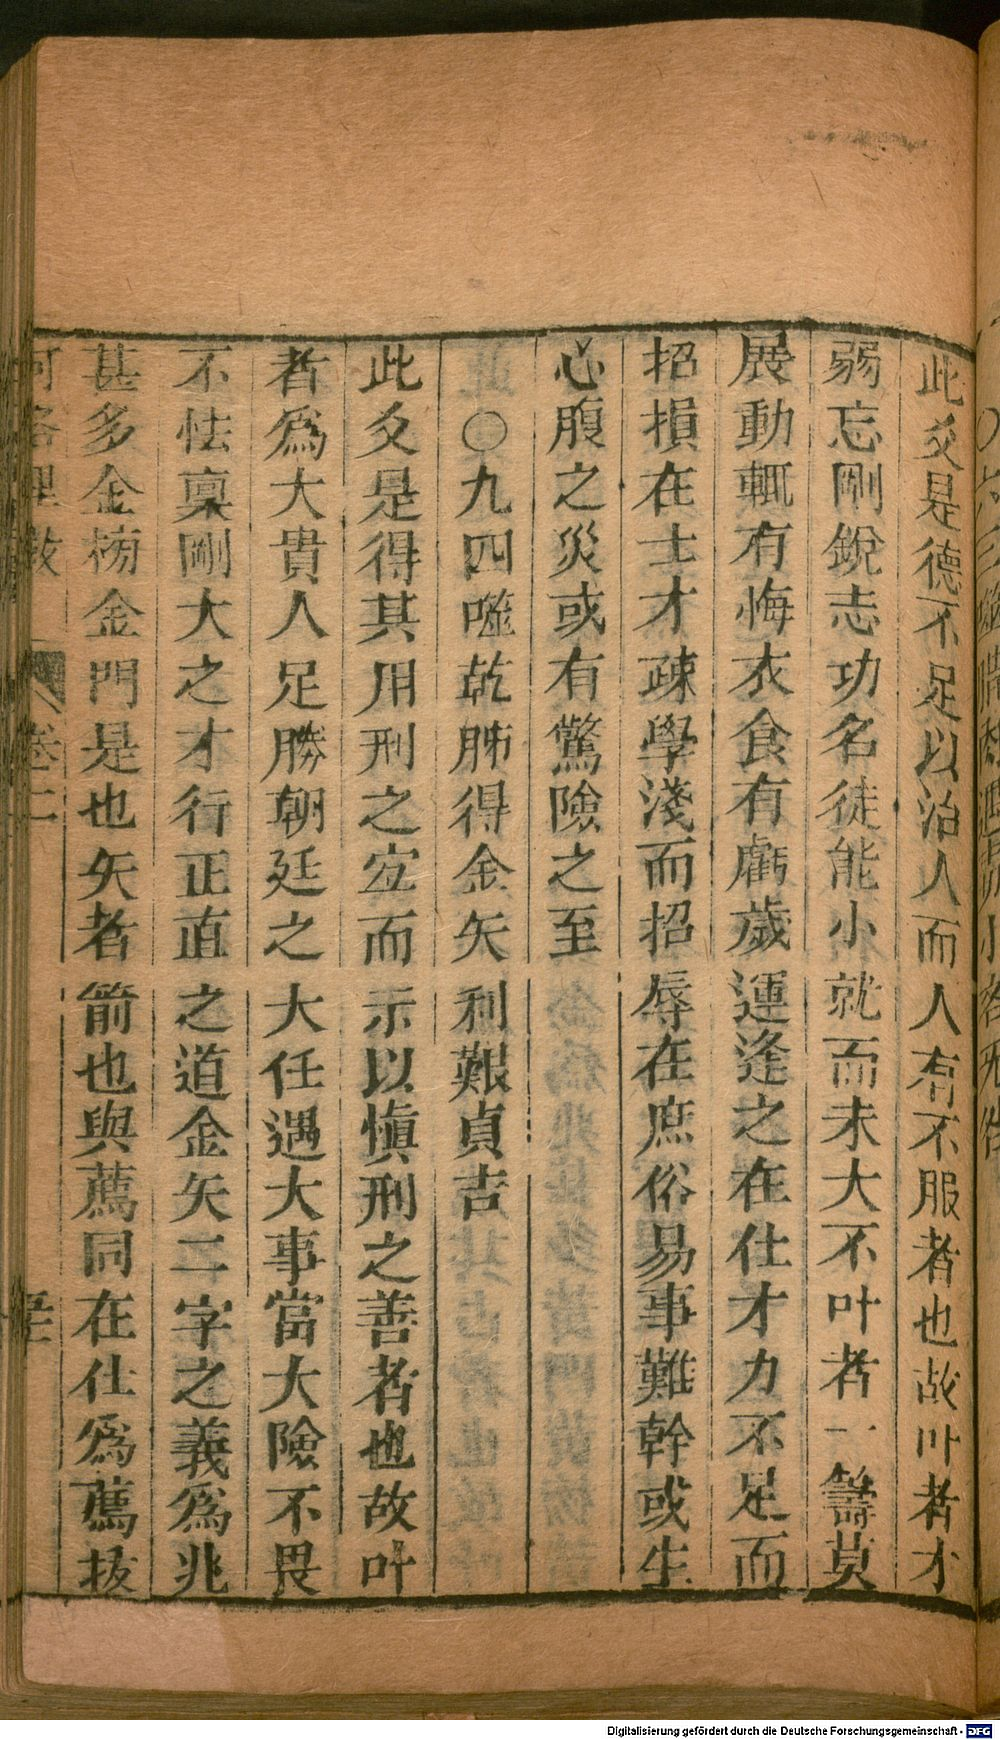 此爻是德不足以治人而人有不服者也故叶者才
弱忘剛銳志功名徒能小就而未大不叶者一籌莫
展動輒有悔衣食有虧歲運逢之在仕才力不足而
招損在士才疎學淺而招辱在庶俗易事難幹或生
心腹之災或有驚險之至
○九四噬乾胏得金矢利艱貞吉
此爻是得其用刑之宜而示以慎刑之善者也故叶
者為大貴人足勝朝廷之大任遇大事當大險不畏
不怯稟剛大之才行正直之道金矢二字之義為兆
甚多金榜金門是也矢者箭也與薦同在仕為薦拔
卷二
Digitalisierung gefördert durch die Deutsche Forschungsgemeinschaft - DFG